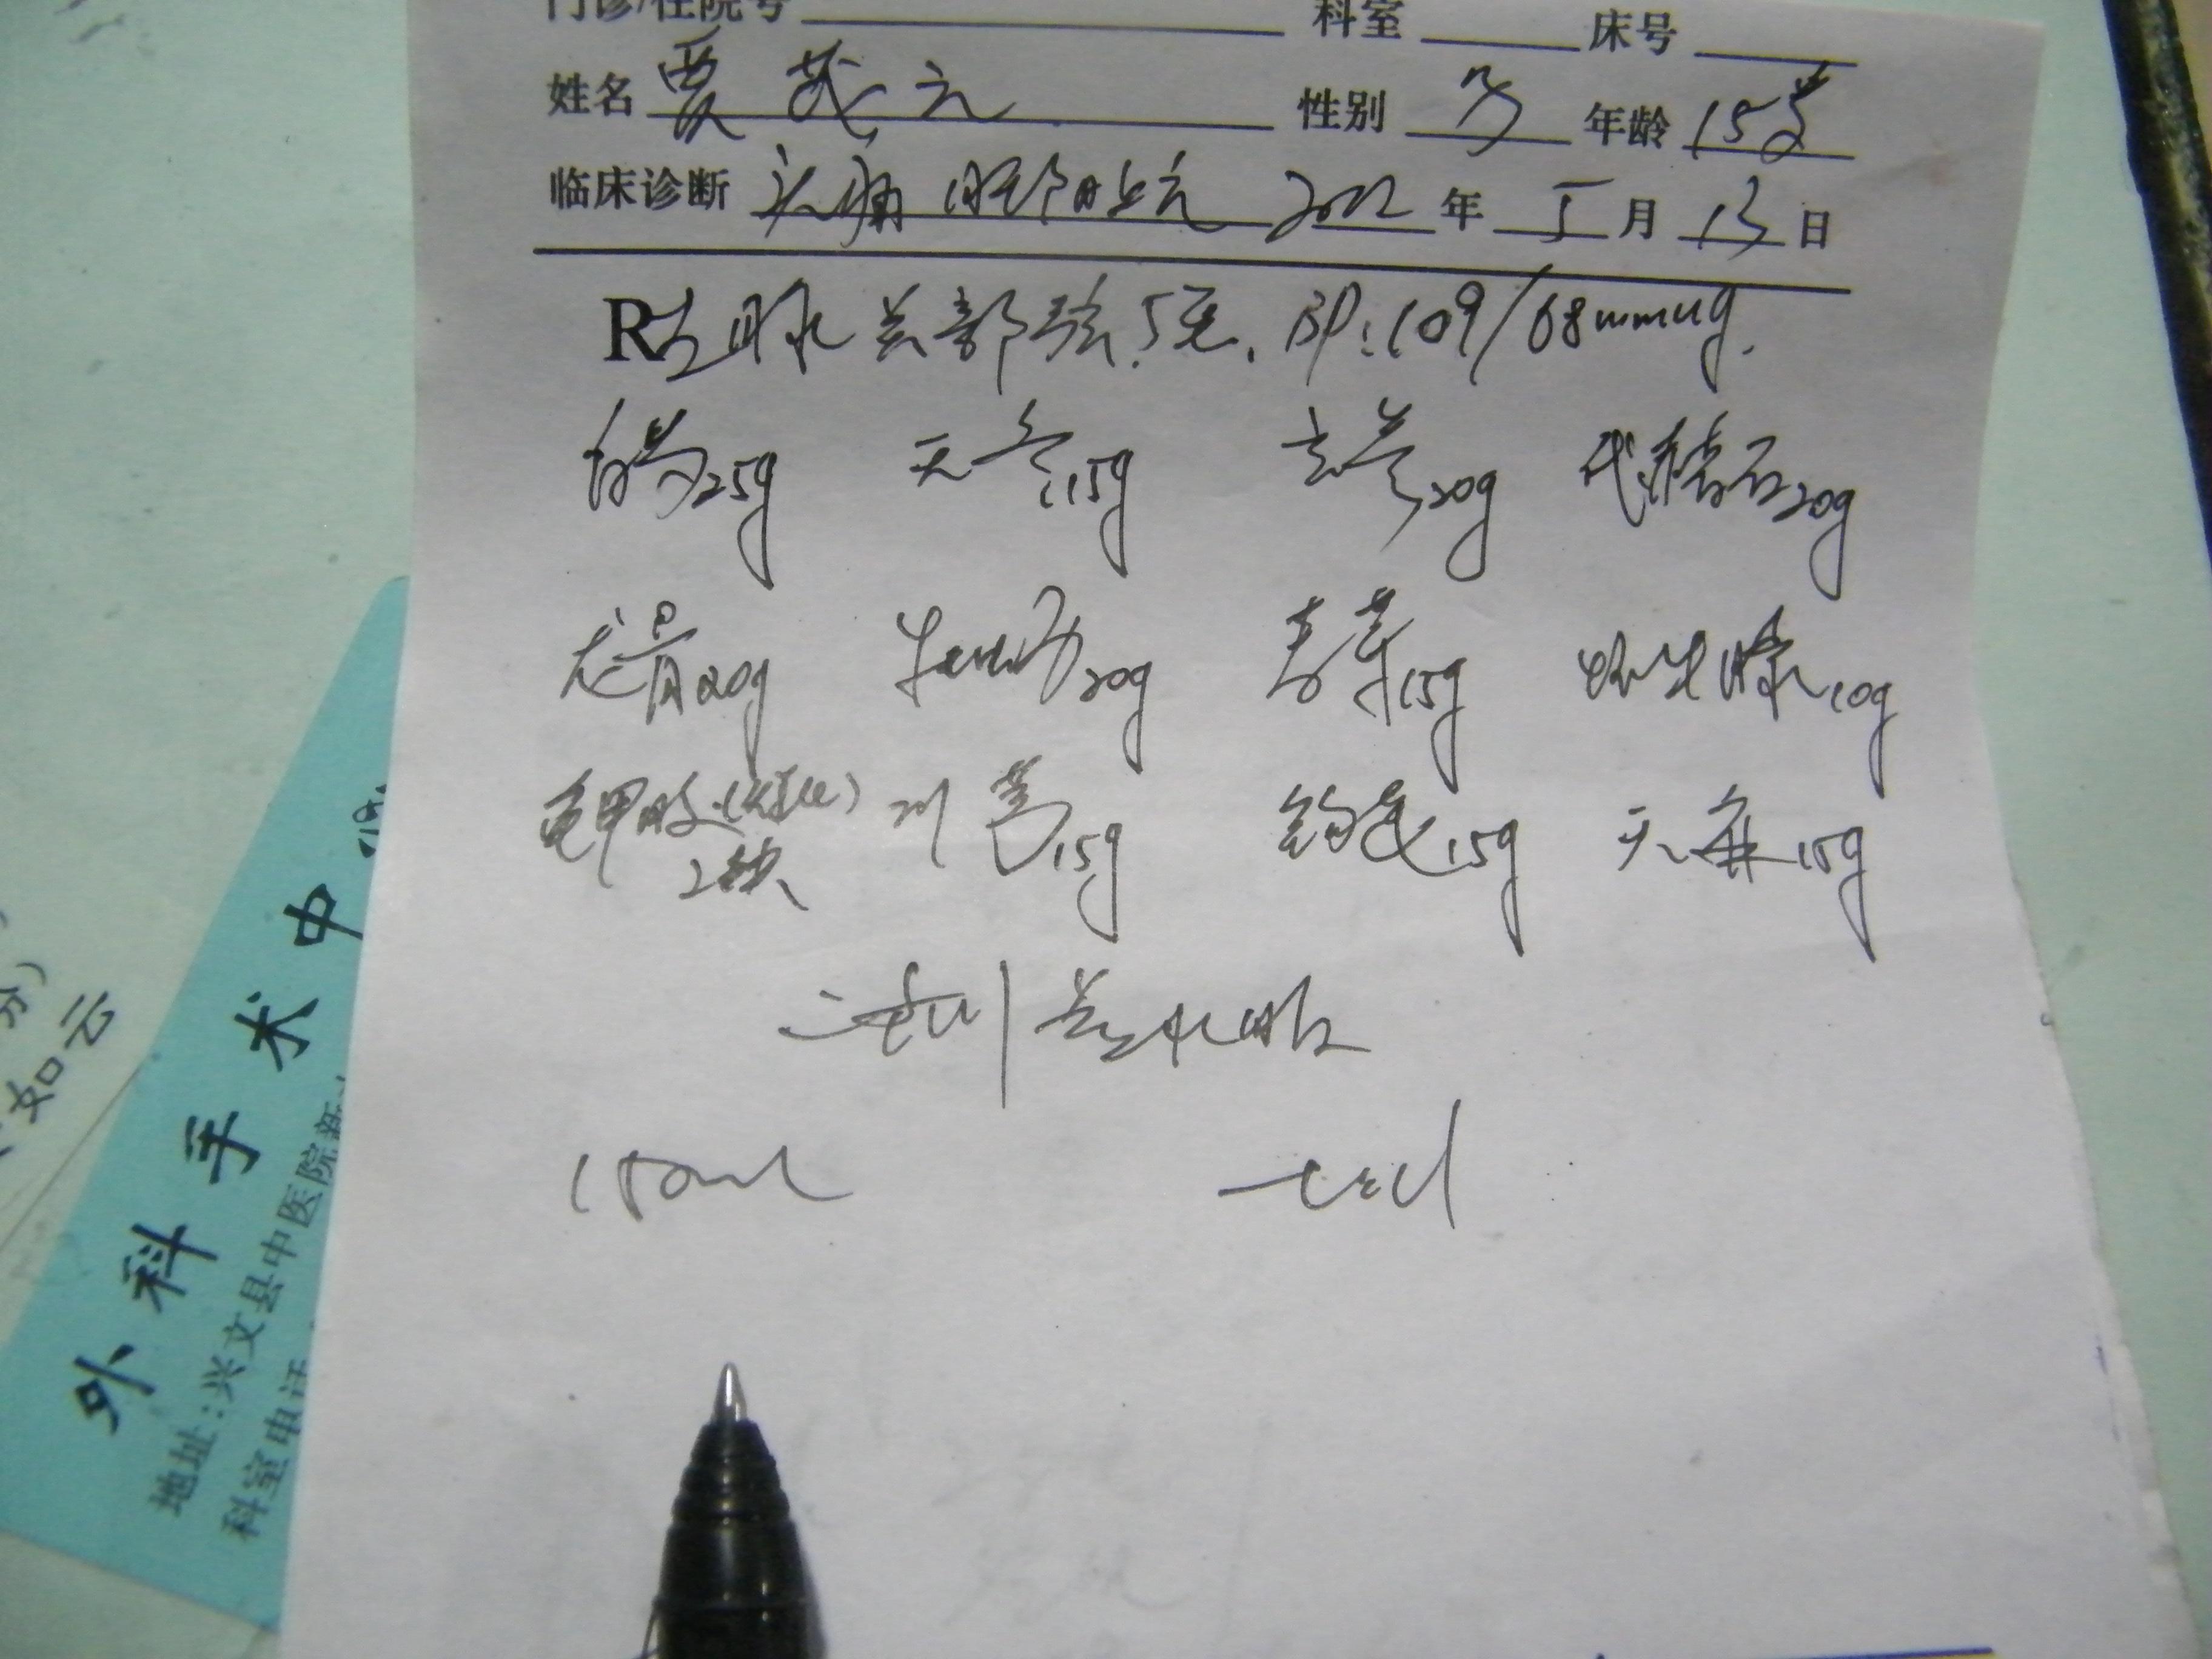 门诊/住院号 科室 床号
姓名 贾 元 性别 男 年龄 15岁
临床诊断 头痛 肝阳上亢 2022年5月13日
R 左脉关部弦 BP:109/68mmHg.
白芍25g 天冬15g 玄参20g 代赭石20g
龙骨20g 牡蛎20g 青蒿15g 怀牛膝10g
龟甲胶(烊化)2块 川芎15g 钩藤15g 天麻15g
三剂 水煎服
150ml tid
外科手术中
地址:兴文县中医院新
科室电话
分)
如云